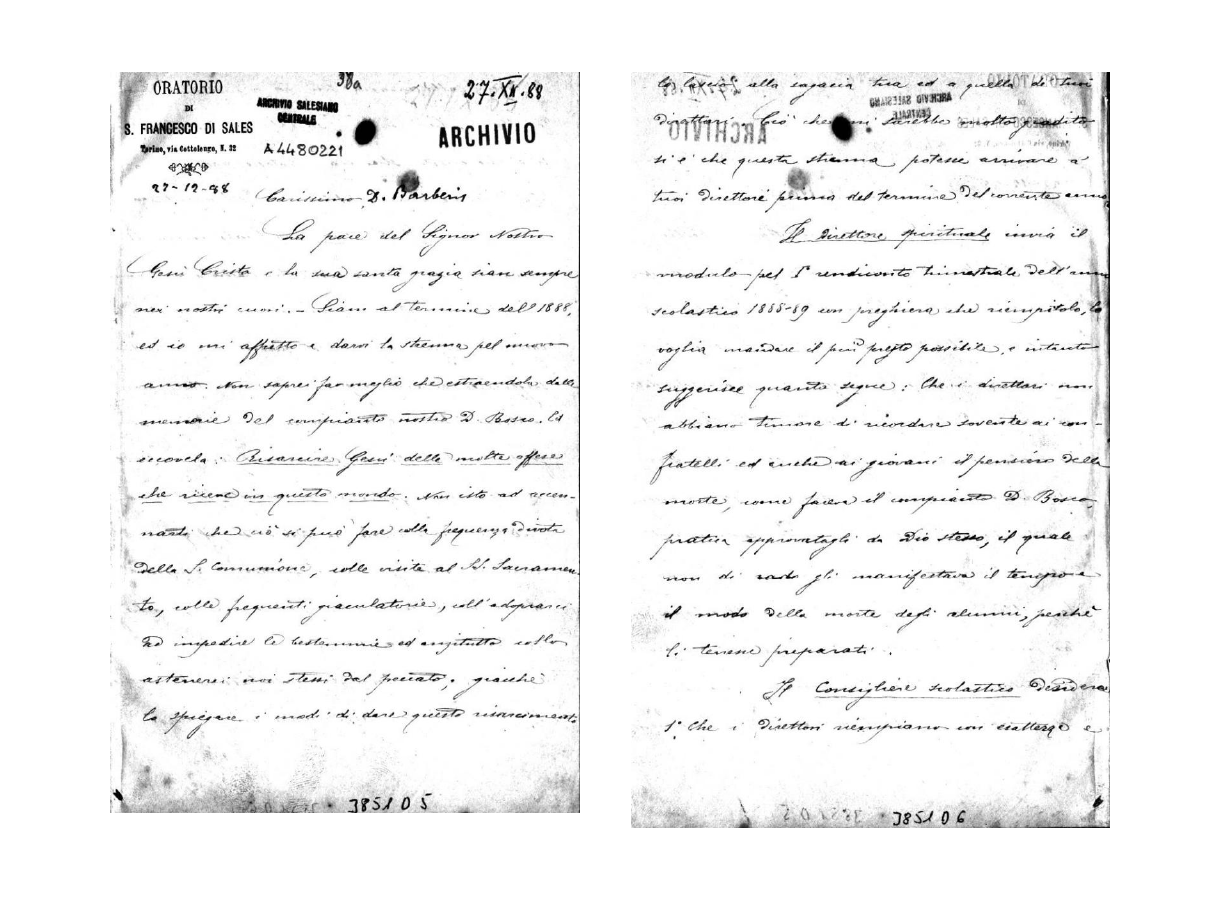 ORATORIO
DI
S. FRANGESCO DI SALES
Torino, via Cottolengo, N. 32
27-12-88
38a
ARCHIVIO SALESIANO
CENTRALE
A4480221
27.XII.88
ARCHIVIO
Carissimo D. Barberis
La pace del Signor Nostro
Gesù Cristo e la sua santa grazia sian sempre
nei nostri cuori. - Siam al termine del 1888,
ed io mi affretto a darvi la strenna pel nuovo
anno. Non saprei far meglio che estraendola dalle
memorie del compianto nostro D. Bosco.
: Risarcire Gesù delle molte offese
che riceve in questo mondo. Non isto ad accen-
narti che ciò si può fare colla frequenza divota
della S. Comunione, colle visite al SS. Sacramen-
to, colle frequenti giaculatorie, coll'adoprarci
ad impedire le bestemmie ed anzitutto collo
astenerci noi stessi dal peccato; giacchè
lo spiegare i modi di dare questo risarcimento
385105
lo lascio alla sagacia tua ed a quella de' tuoi
direttori. Ciò che mi sarebbe molto gradito
si è che questa strenna potesse arrivare a'
tuoi direttori prima del termine del corrente anno
Il Direttore spirituale invia il
modulo pel 1° rendiconto trimestrale dell'anno
scolastico 1888-89 con preghiera che riempitolo, lo
voglia mandare il più presto possibile, e intanto
suggerisce quanto segue: Che i direttori non
abbiano timore di ricordare sovente ai con-
fratelli ed anche ai giovani il pensiero della
morte, come faceva il compianto D. Bosco,
pratica approvatagli da Dio stesso, il quale
non di rado gli manifestava il tempo e
il modo della morte degli alunni, perchè
li tenesse preparati.
Il Consigliere scolastico desidera
1°. Che i direttori riempiano con esattezza e
385106